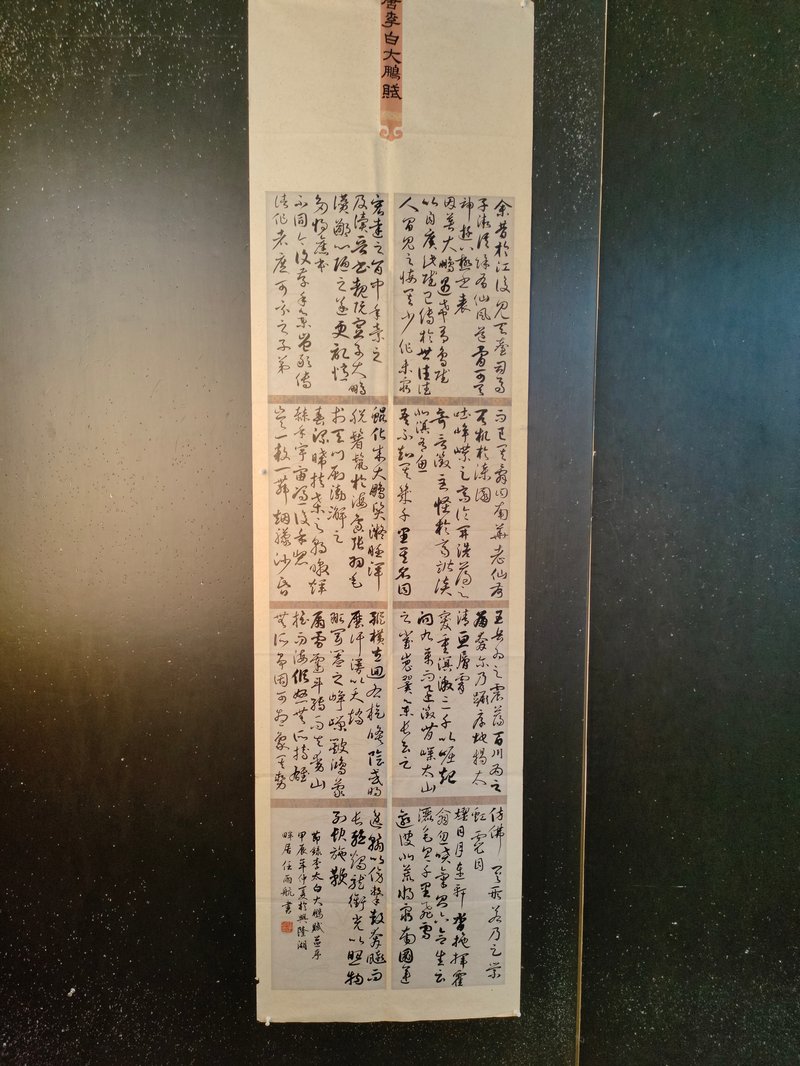 唐李白大鵬賦
余昔於江陵見天臺司馬
子微謂余有仙風道骨可與
神遊八極之表
因著大鵬遇希有鳥賦
以自廣此賦已傳於世往往
人間見之悔其少作未窮
宏達之旨中年棄之
及讀晉書覩阮宣子大鵬
讚鄙心陋之遂更記憶
多將舊本
不同今復存手集豈敢傳
諸作者庶可示之子弟
而已其辭曰南華老仙發
天機於漆園
吐崢嶸之高論開浩蕩之
奇言徵至怪於齊諧談
北溟有魚
吾不知其幾千里其名曰
鯤化成大鵬質凝胚渾
脫鬐鬣於海島張羽毛
於天門刷渤澥之
春流晞扶桑之朝暾燀
赫乎宇宙
一鼓一舞烟朦沙昏
五岳為之震蕩百川為之
崩奔爾乃蹶厚地揭太
清亘層霄
突重溟激三千以崛起
向九萬而迅征背嶪太山
之崔嵬翼舉長雲之
縱橫左迴右旋倏陰忽明
歷汗漫以夭矯
羾閶闔之崢嶸簸鴻蒙
扇雷霆斗轉而天動山
搖而海傾怒無所搏雄
無所爭固可想像其勢
彷彿其形若乃足縈
虹霓目
耀日月連軒沓拖揮霍
翕忽噴氣則六合生雲
灑毛則千里飛雪
邈彼北荒將窮南圖運
逸翰以傍擊鼓奔飇而
長驅燭龍銜光以照物
列缺施鞭
節錄李太白大鵬賦并序
甲辰年仲夏於興隆湖
畔居任雨航書